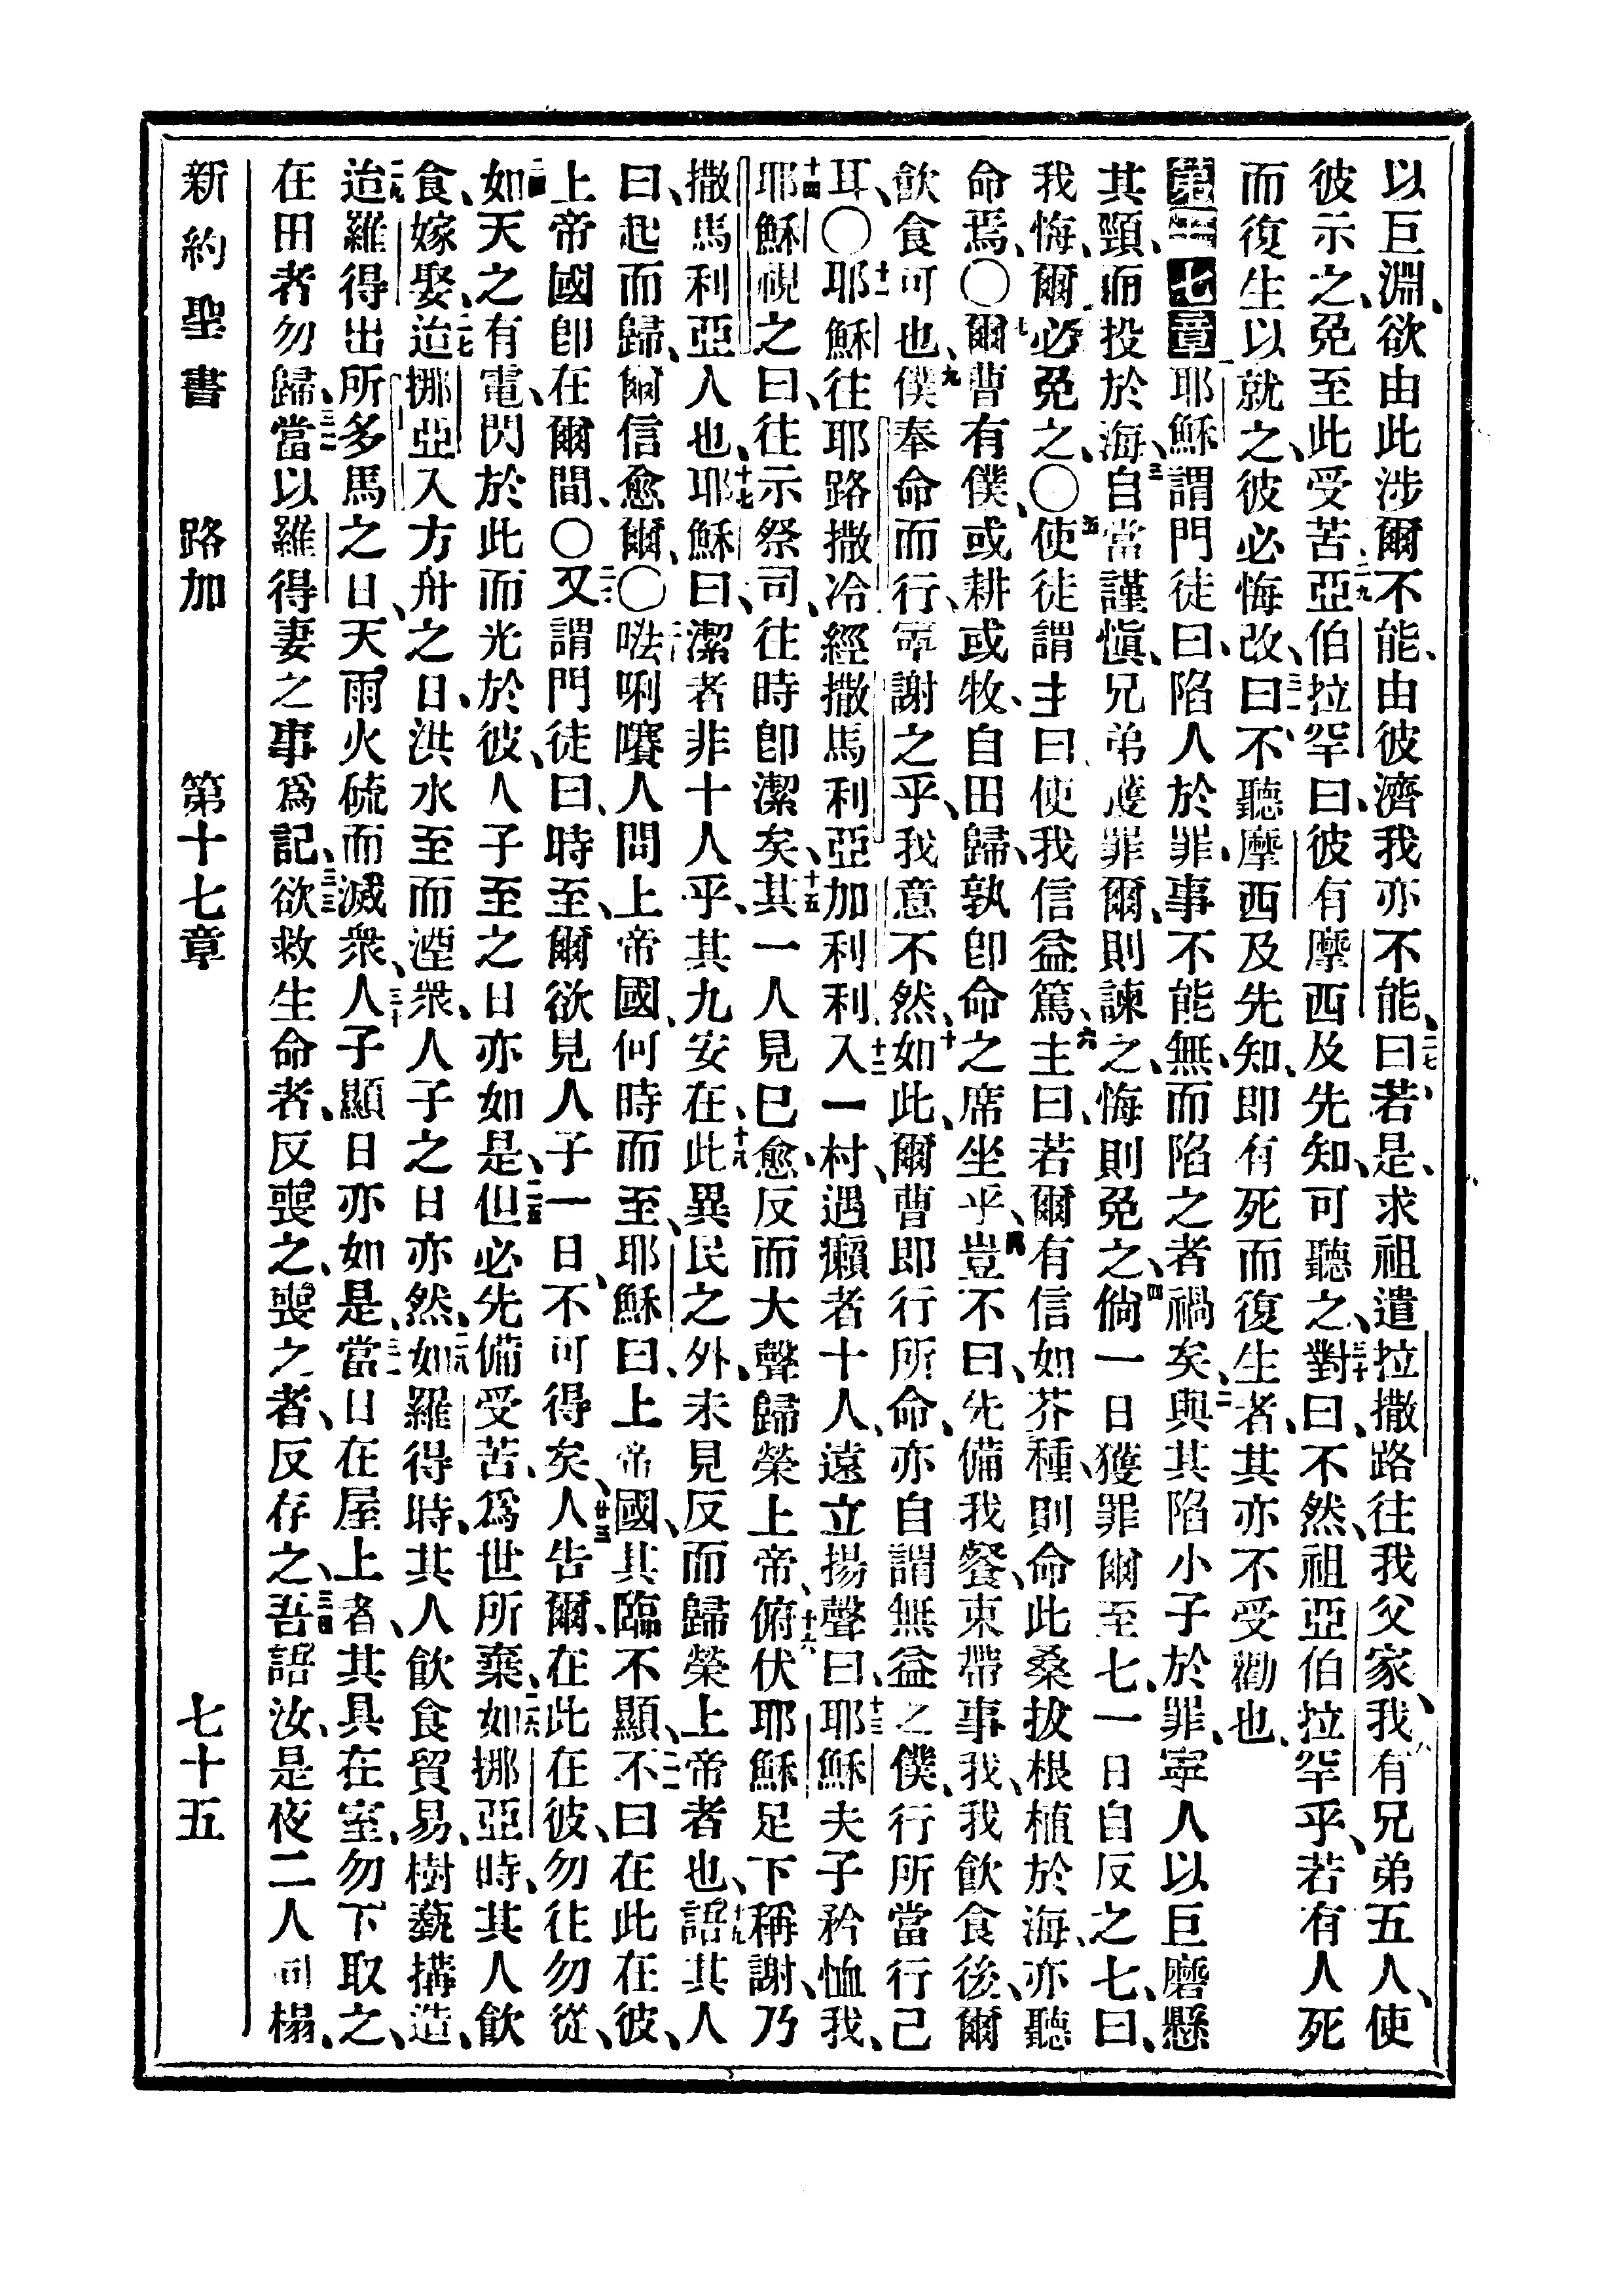 以巨淵、欲由此涉爾不能、由彼濟我亦不能、二七曰、若是、求祖遣拉撒路往我父家、二八我有兄弟五人、使
彼示之、免至此受苦、二九亞伯拉罕曰、彼有摩西及先知、可聽之、三十對曰、不然、祖亞伯拉罕乎、若有人死
而復生以就之、彼必悔改、三一曰、不聽摩西及先知、即有死而復生者、其亦不受勸也、
第十七章 耶穌謂門徒曰、陷人於罪、事不能無、而陷之者禍矣、二與其陷小子於罪、寧人以巨磨懸
其頸、而投於海、三自當謹愼、兄弟獲罪爾、則諫之、悔則免之、四倘一日獲罪爾至七、一日自反之七、曰、
我悔、爾必免之、〇五使徒謂主曰、使我信益篤、六主曰、若爾有信如芥種、則命此桑拔根植於海、亦聽
命焉、〇七爾曹有僕、或耕或牧、自田歸、孰即命之席坐乎、八豈不曰、先備我餐、束帶事我、我飲食後、爾
飲食可也、九僕奉命而行、寧謝之乎、我意不然、十如此、爾曹即行所命、亦自謂無益之僕、行所當行己
耳、〇十一耶穌往耶路撒冷、經撒馬利亞加利利、十二入一村、遇癩者十人、遠立、十三揚聲曰、耶穌夫子矜恤我、
十四耶穌視之曰、往示祭司、往時即潔矣、十五其一人見已愈、反而大聲歸榮上帝、十六俯伏耶穌足下稱謝、乃
撒馬利亞人也、十七耶穌曰、潔者非十人乎、其九安在、十八此異民之外、未見反而歸榮上帝者也、十九語其人
曰、起而歸、爾信愈爾、〇二十𠵽唎嚽人問上帝國、何時而至、耶穌曰、上帝國、其臨不顯、二一不曰在此在彼、
上帝國即在爾間、〇二二又謂門徒曰、時至、爾欲見人子一日、不可得矣、廿三人告爾、在此在彼、勿往勿從、
二四如天之有電、閃於此而光於彼、人子至之日亦如是、二五但必先備受苦、爲世所棄、二六如挪亞時、其人飲
食、嫁娶、二七迨挪亞入方舟之日、洪水至而湮衆、人子之日亦然、二八如羅得時、其人飲食貿易、樹藝搆造、
二九迨羅得出所多馬之日、天雨火硫而滅衆、三十人子顯日亦如是、三一當日在屋上者、其具在室、勿下取之、
在田者勿歸、三二當以羅得妻之事爲記、三三欲救生命者、反喪之、喪之者、反存之、三四吾語汝、是夜二人同榻、
新約聖書 路加 第十七章 七十五